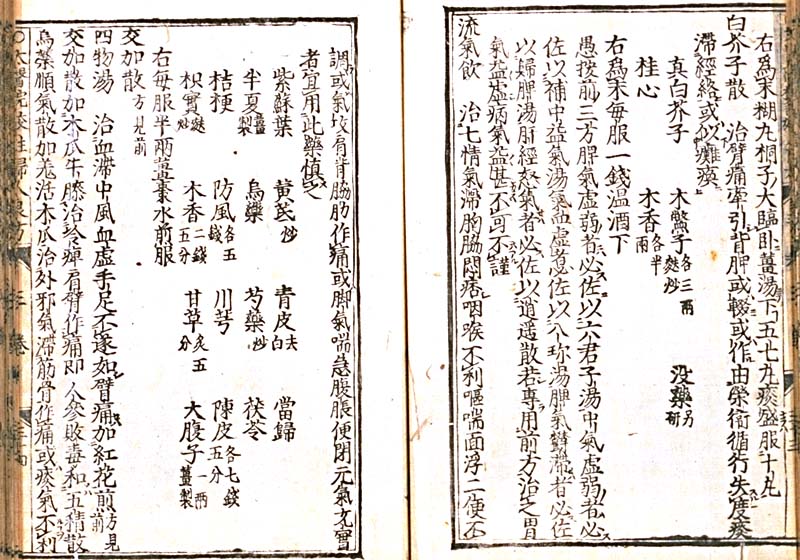 右爲末糊丸桐子大臨卧薑湯下五七丸痰盛服十丸
白芥子散　治臂痛牽引背胛或輟或作由榮衛循行失度痰
滯經絡或以癱瘓
真白芥子　木鱉子各三兩麩炒　没藥另研
桂心　木香各半兩
右爲末每服一錢温酒下
愚按前三方脾氣虚弱者必佐以六君子湯中氣虚弱者必
佐以補中益氣湯氣血虚憊佐以八珍湯脾氣鬱滯者必佐
以歸脾湯肝經怒氣者必佐以逍遥散若專用前方治之胃
氣益虚病氣益甚不可不謹
流氣飲　治七情氣滯胸脇悶痞咽喉不利嘔喘面浮二便不
調或氣攻肩背脇肋作痛或脚氣喘急腹脹便閉元氣充實
者宜用此藥慎之
紫蘇葉　黄芪炒　青皮去白　當歸
半夏薑製　烏藥　芍藥炒　茯苓
桔梗　防風各五錢　川芎　陳皮各七錢五分
枳實麩炒　木香二錢五分　甘草炙五分　大腹子一兩薑製
右每服半兩薑棗水煎服
交加散方見前
四物湯　治血滯中風血虚手足不遂如臂痛加紅花煎方見前
交加散加木瓜牛膝治冷痺肩臂作痛即人參敗毒和五積散
烏藥順氣散加羌活木瓜治外邪氣滯筋骨作痛或痰氣不利
○太醫院校註婦人良方　三卷